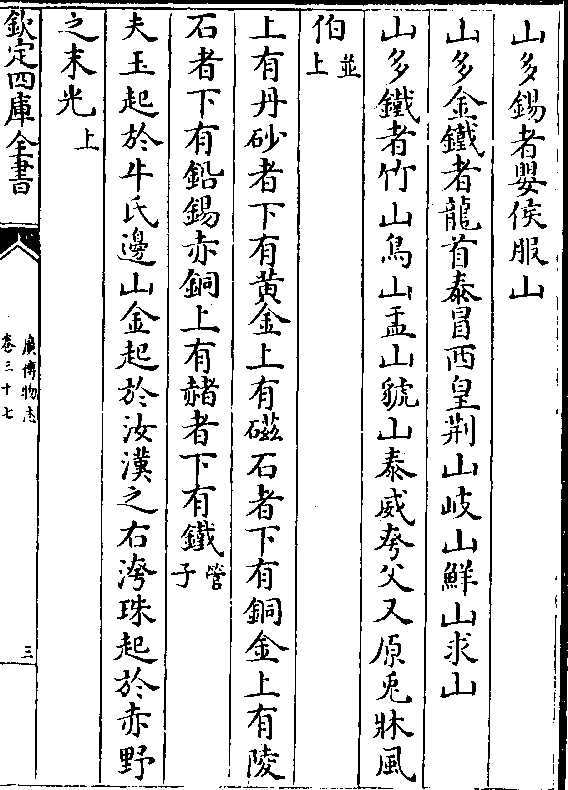 山多錫者嬰侯服山
山多金鐵者龍首泰冒西皇荆山岐山鮮山求山
山多鐵者竹山鳥山盂山虢山泰威夸父又原兎牀風
伯並上
上有丹砂者下有黄金上有磁石者下有銅金上有陵
石者下有鉛錫赤銅上有赭者下有鐵管子
夫玉起於牛氏邊山金起於汝漢之右洿珠起於赤野
之末光上
欽定四庫全書
廣博物志
卷三十七
三